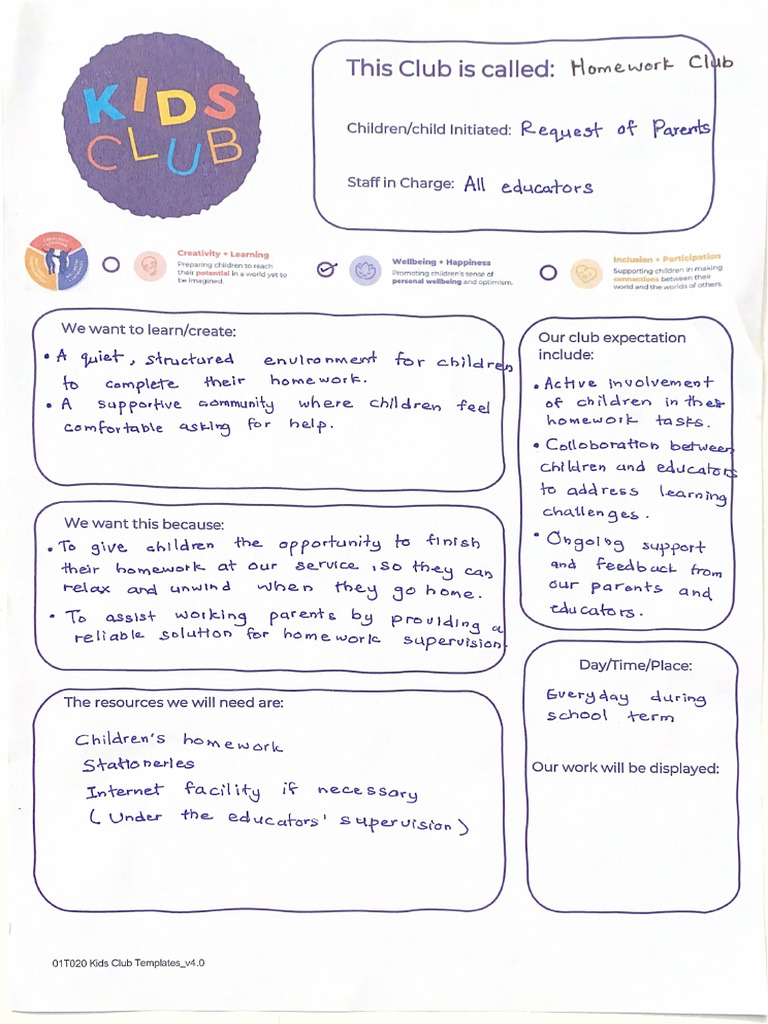 KIDS
CLUB
This Club is called: Homework Club
Children/child Initiated: Request of Parents
Staff in Charge: All educators
Creativity + Learning
Preparing children to reach
their potential in a world yet to
be imagined.
Wellbeing + Happiness
Promoting children's sense of
personal wellbeing and optimism.
Inclusion + Participation
Supporting children in making
connections between their
world and the worlds of others.
We want to learn/create:
• A quiet, structured environment for children
to complete their homework.
• A supportive community where children feel
comfortable asking for help.
Our club expectation
include:
• Active involvement
of children in their
homework tasks.
• Collaboration between
children and educators
to address learning
challenges.
• Ongoing support
and feedback from
our parents and
educators.
We want this because:
• To give children the opportunity to finish
their homework at our service, so they can
relax and unwind when they go home.
• To assist working parents by providing a
reliable solution for homework supervision.
Day/Time/Place:
Everyday during
school term
Our work will be displayed:
The resources we will need are:
Children's homework
Stationeries
Internet facility if necessary
(Under the educators' supervision)
01T020 Kids Club Templates_v4.0